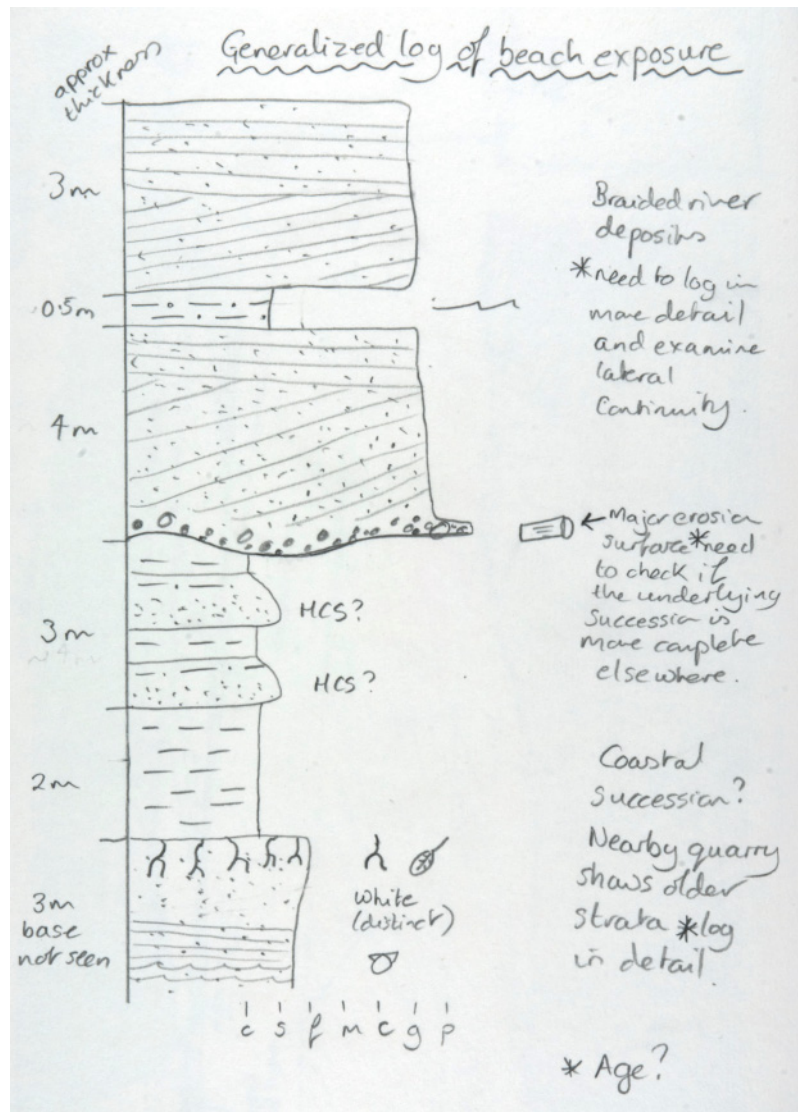 Generalized log of beach exposure
approx
thickness
3m
0.5m
4m
3m
2m
3m
base
not seen
HCS?
HCS?
white
(distinct)
c s f m c g p
Braided river
deposits
*need to log in
more detail
and examine
lateral
continuity.
←Major erosion
surface *need
to check if
the underlying
succession is
more complete
elsewhere.
Coastal
succession?
Nearby quarry
shows older
strata *log
in detail
* Age?